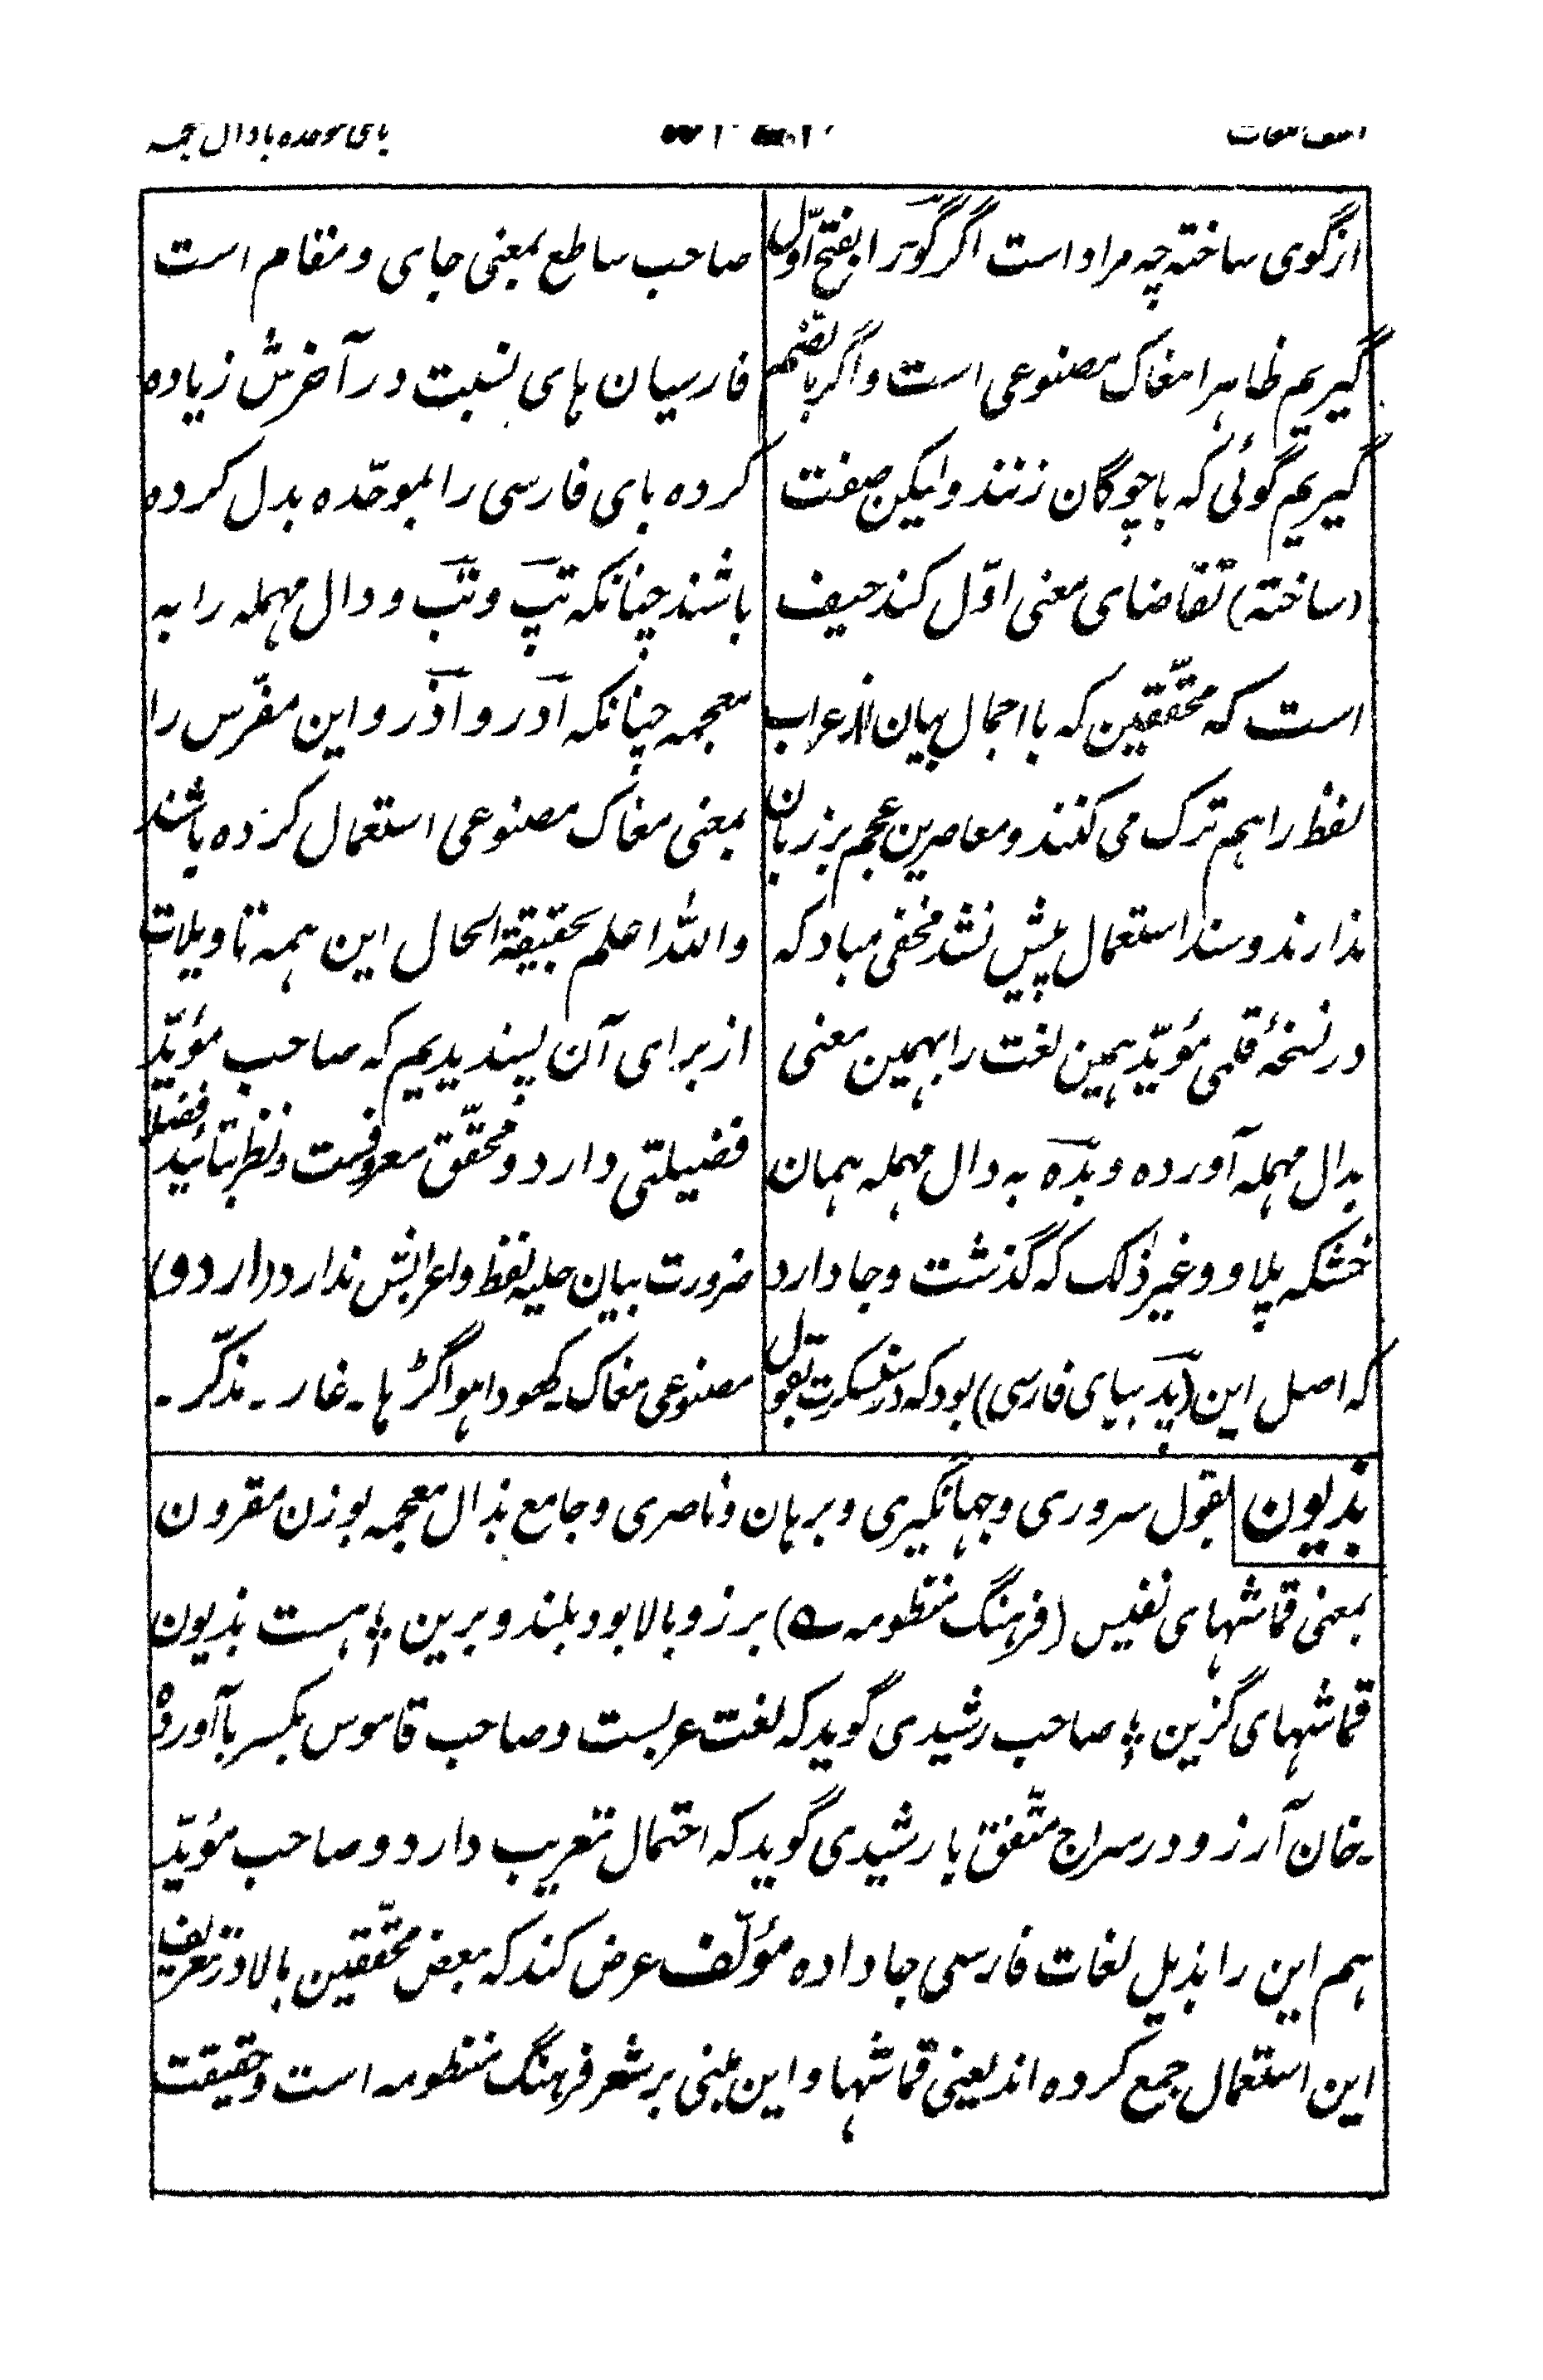 بای موحده با ذال معجمه
از گوی ساخته چه مراد است اگر گَو را بفتح اوّل
گیریم ظاهرا مغاک مصنوعی است و اگر بالضّم
گیریم گوئی که با چوگان زنند ولیکن صفت
(ساخته) تقاضای معنی اوّل کند حیف
است که محقّقین که با اجمال بیان اعراب
لفظ را هم ترک می کنند و معاصرین عجم بر زبان
ندارند و سند استعمال پیش نشد مخفی مباد که
در نسخهٔ قلمی مؤیّد همین لغت را بهمین معنی
بدال مهمله آورده و بدَه به دال مهمله همان
خشکه پلاو و غیر ذٰلک که گذشت و جا دارد
که اصل این (پد ببای فارسی) بود که در سنسکرت بقول
صاحب ساطع بمعنی جای و مقام است
فارسیان های نسبت در آخرش زیاده
کرده بای فارسی را بموحّده بدل کرده
باشند چنانکه تپ و تب و دال مهمله را به
معجمه چنانکه آدر و آذر و این مفرّس را
بمعنی مغاک مصنوعی استعمال کرده باشند
والله اعلم بحقیقة الحال این همه تاویلات
از برای آن پسندیدیم که صاحب مؤیّد
فضیلتی دارد و محقّق معروفست و نظر بتائید فضلا
ضرورت بیان حلیه لفظ و اعرابش ندارد (اردو)
مصنوعی مغاک ـ کھودا ہوا گڑھا ـ غار ـ مذکّر ـ
بذیون بقول سروری و جهانگیری و برهان و ناصری و جامع بذال معجمه بوزن مقرون
بمعنی قماشهای نفیس (فرهنگ منظومه ؎) برز و بالا بود بلند و برین ؛ هست بذیون
قماشهای گزین ؛ صاحب رشیدی گوید که لغت عربست و صاحب قاموس بکسر با آورده
ـ خان آرزو در سراج متّفق با رشیدی گوید که احتمال تعریب دارد و صاحب مؤیّد
هم این را بذیل لغات فارسی جا داده مؤلّف عرض کند که بعض محقّقین بالا در تعریف
این استعمال جمع کرده اند یعنی قماشها و این مبنی بر شعر فرهنگ منظومه است و حقیقت